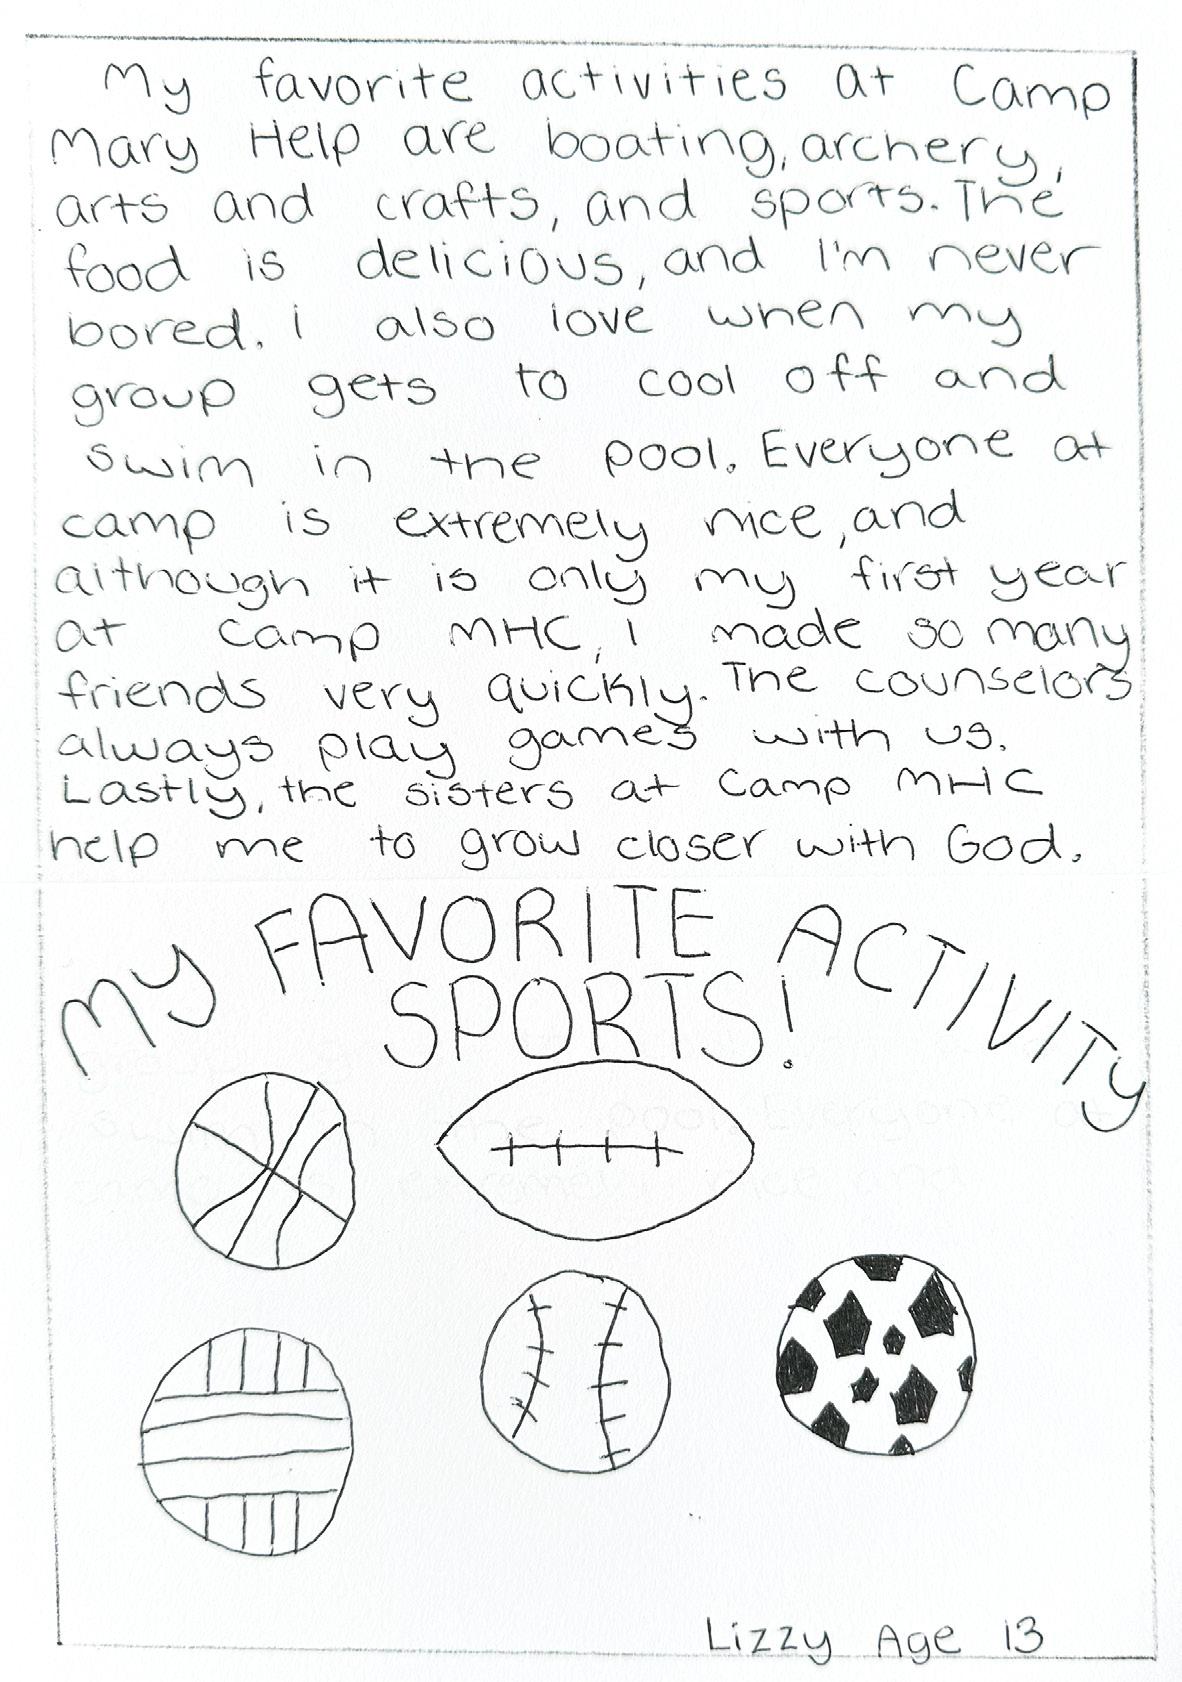 My favorite activities at Camp
Mary Help are boating, archery,
arts and crafts, and sports. The
food is delicious, and I'm never
bored. i also love when my
group gets to cool off and
swim in the pool. Everyone at
camp is extremely nice, and
although it is only my first year
at Camp MHC, I made so many
friends very quickly. The counselors
always play games with us.
Lastly, the sisters at Camp MHC
help me to grow closer with God.
My FAVORITE ACTIVITy
SPORTS!
Lizzy Age 13